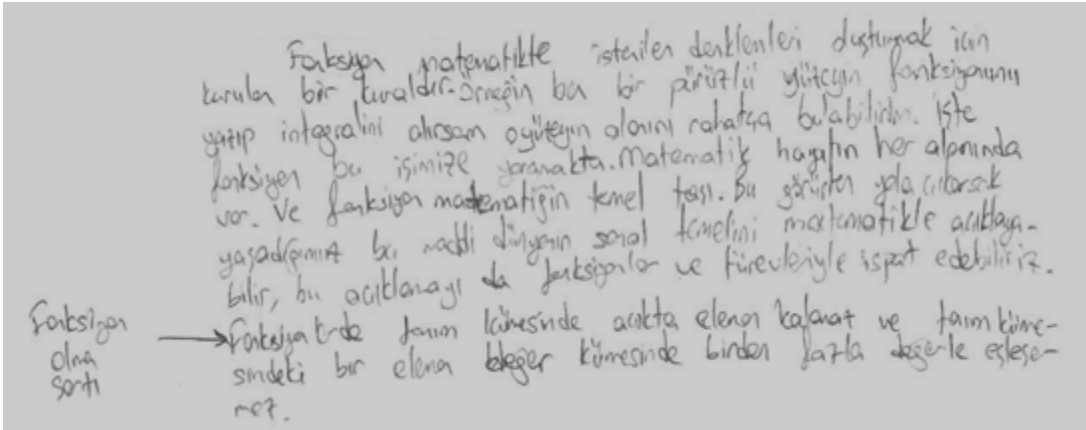 Fonksiyon matematikte istenilen denklemleri oluşturmak için
kurulan bir kuraldır. Örneğin ben bir pürüzlü yüzeyin fonksiyonunu
yazıp integralini alırsam o yüzeyin alanını rahatça bulabilirim. İşte
fonksiyon bu işimize yaramakta. Matematik hayatın her alanında
var. Ve fonksiyon matematiğin temel taşı. Bu görüşten yola çıkarsak
yaşadığımız bu maddi dünyanın sanal temelini matematikle açıklaya-
bilir, bu açıklamayı da fonksiyonlar ve türevleriyle ispat edebiliriz.
Fonksiyon
olma
şartı
→ Fonksiyonlarda tanım kümesinde açıkta eleman kalamaz ve tanım küme-
sindeki bir eleman değer kümesinde birden fazla değerle eşleşe-
mez.